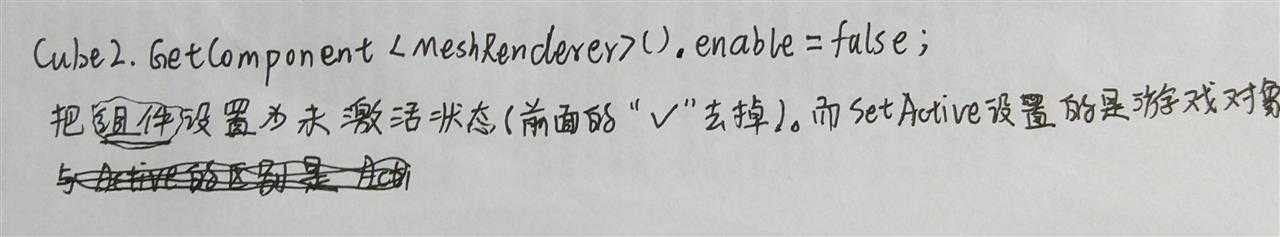 Cube2.GetComponent<MeshRenderer>().enable=false;
把组件设置为未激活状态(前面的“√”去掉)。而SetActive设置的是游戏对象
与Active的区别是 Acti